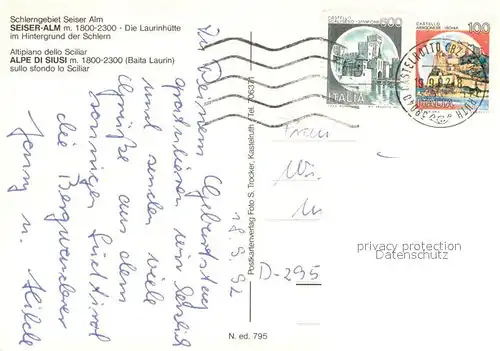 Schlerngebiet Seiser Alm
SEISER-ALM m. 1800-2300 - Die Laurinhütte
im Hintergrund der Schlern
Altipiano dello Sciliar
ALPE DI SIUSI m. 1800-2300 (Baita Laurin)
sullo sfondo lo Sciliar
18.9.92
Zu Deinem Geburtstag
gratulieren wir herzlich
und senden viele
Grüße aus dem
sonnigen Südtirol
die Bergwanderer
Jenny u. Hilde
Postkartenverlag Foto S. Trocker, Kastelruth (Tel. 0471
N. ed. 795
Frau
D-295
500
ITALIA
CASTELLO
ARAGONESE - ISCHIA
100
ITALIA
39040 CASTELROTTO (BZ)
privacy protection
Datenschutz